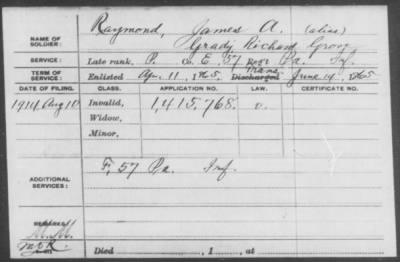 NAME OF SOLDIER: Raymond, James A. (alias)
Grady, Richard
SERVICE: Late rank, P. Co. E, 57 Reg't Pa. Inf.
TERM OF SERVICE: Enlisted Apr. 11, 1865 Discharged Trans June 14, 1865
DATE OF FILING. CLASS. APPLICATION NO. LAW. CERTIFICATE NO.
1914 Aug 10 Invalid, 1,415,768.
Widow,
Minor,
ADDITIONAL SERVICES: F, 57 Pa. Inf.
Died , 1 , at